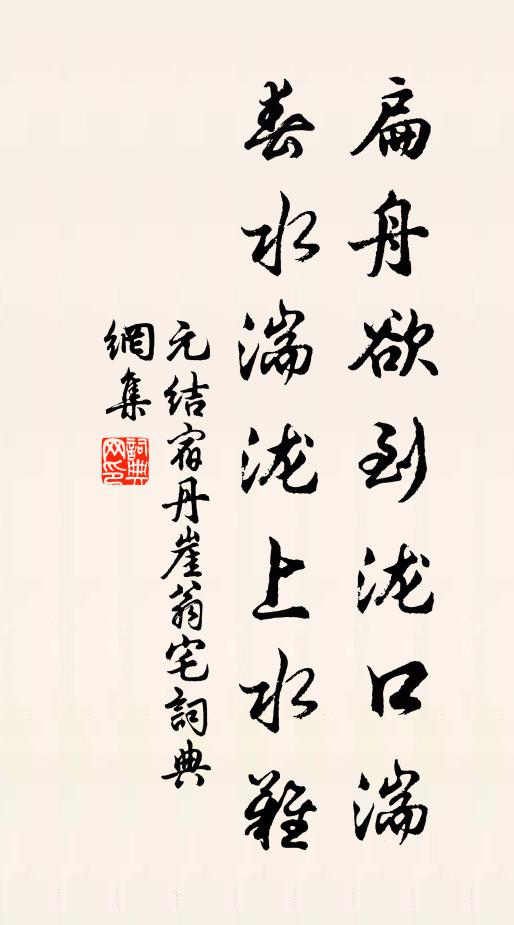 扁舟欲到泷口湍
春水湍泷上水難
元结宿丹崖翁宅詞典
網集
詞典网印